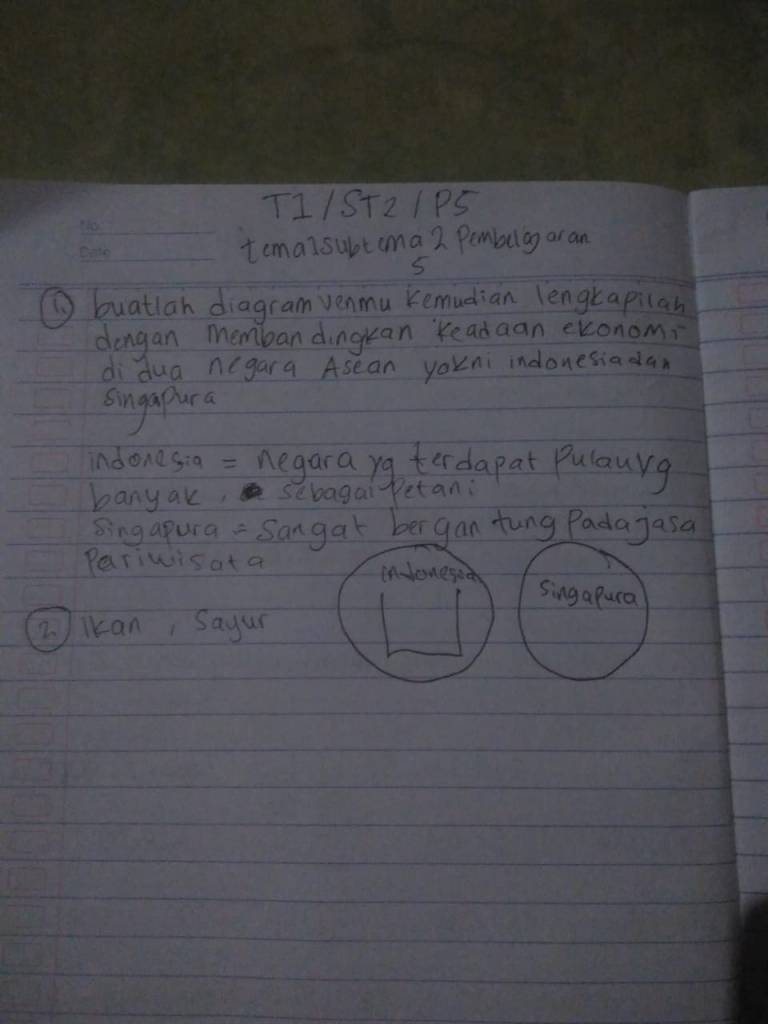 No.
Date
T1/ST2/P5
tema1subtema 2 Pembelajaran
5
1. buatlah diagram venmu kemudian lengkapilah
dengan Membandingkan keadaan ekonomi
di dua negara Asean yakni indonesia dan
Singapura
indonesia = negara yg terdapat Pulau yg
banyak, sebagai Petani
Singapura = Sangat bergantung Pada jasa
Pariwisata
indonesia
Singapura
2. Ikan, Sayur